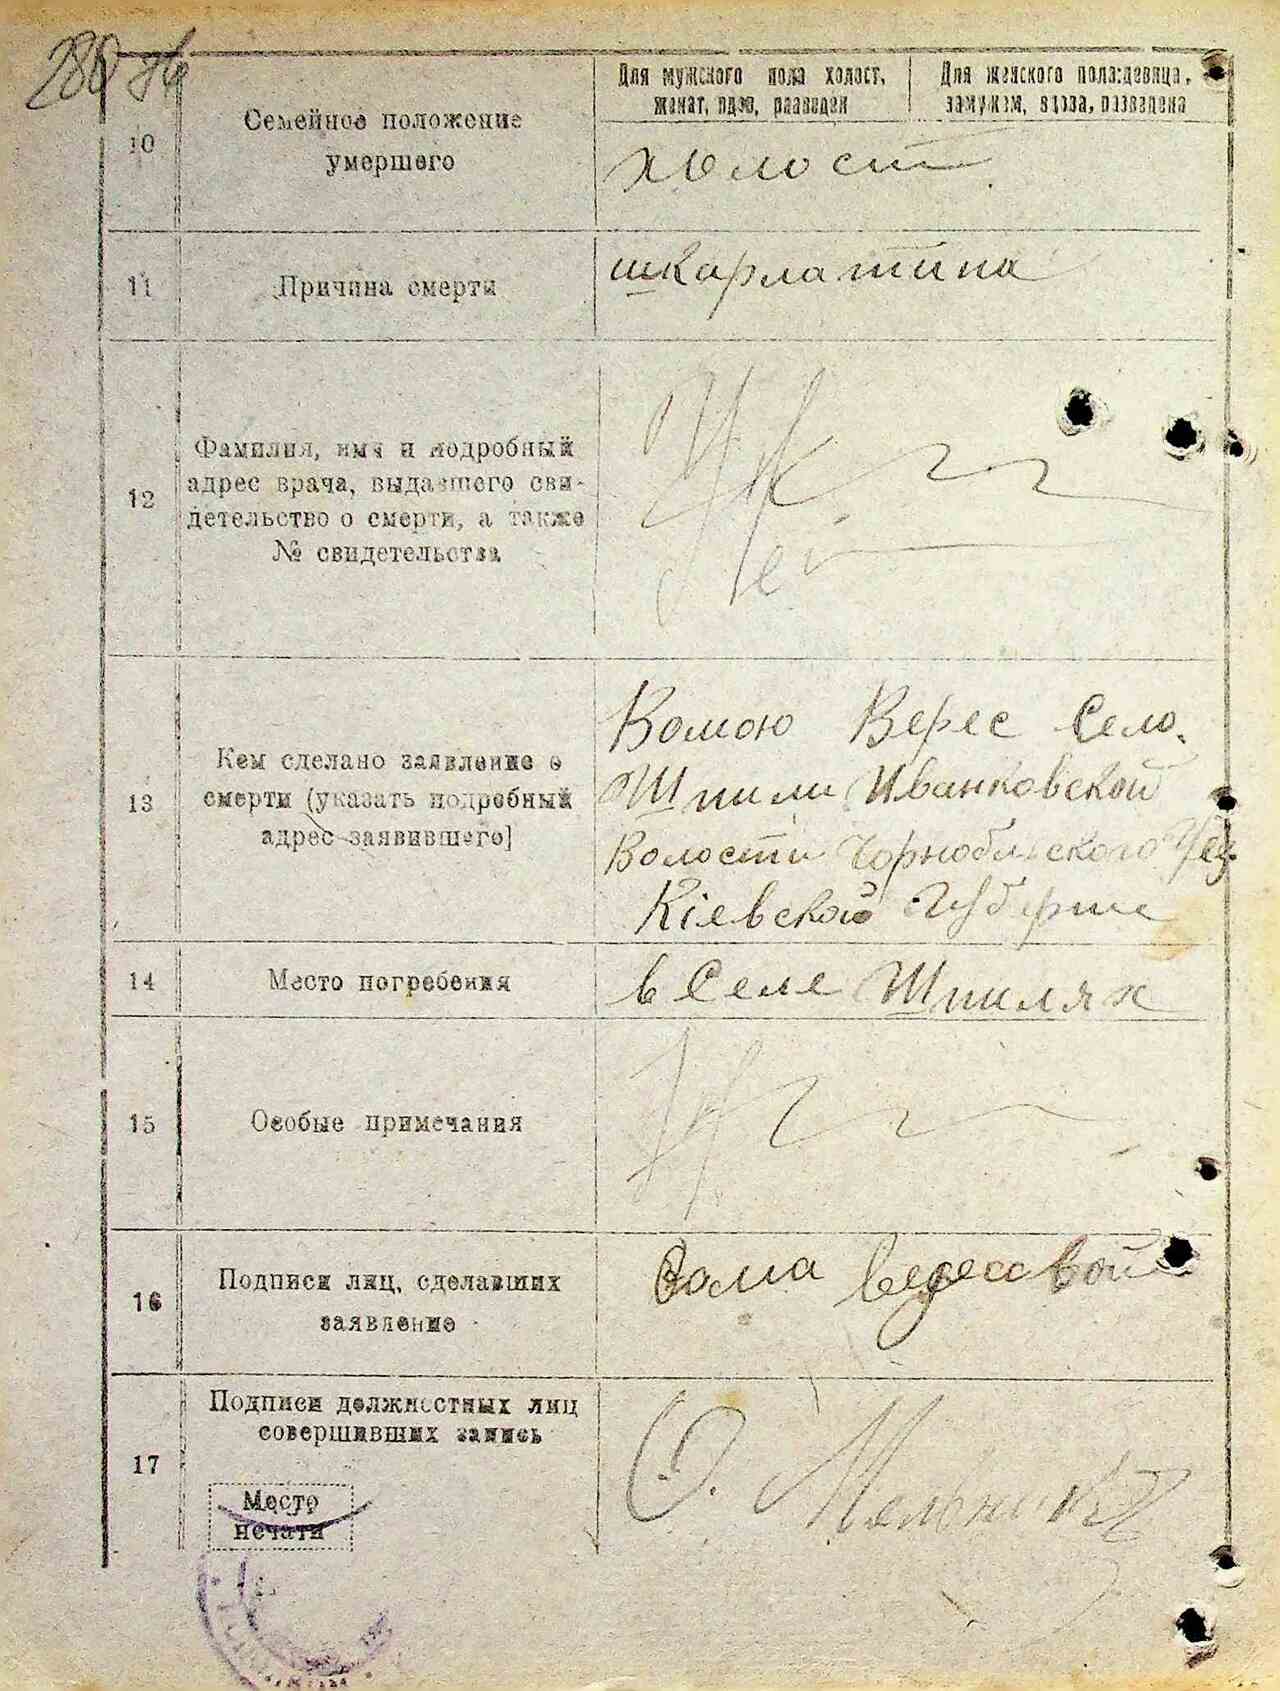 286 зв
Для мужского пола холост,
женат, вдов, разведен
Для женского пола: девица,
замужем, вдова, разведена
10
Семейное положение
умершего
холост
11
Причина смерти
шкарлатина
12
Фамилия, имя и подробный
адрес врача, выдавшего сви-
детельство о смерти, а также
№ свидетельства
13
Кем сделано заявление о
смерти (указать подробный
адрес заявившего]
Вомою Верес Село
Шпили Иванковской
Волости Чорнобильского Уез
Кіевской Губернии
14
Место погребения
в Селе Шпилях
15
Особые примечания
16
Подписи лиц, сделавших
заявление
Вома
17
Подписи должностных лиц
совершивших запись
О. Мельник
Место
печати